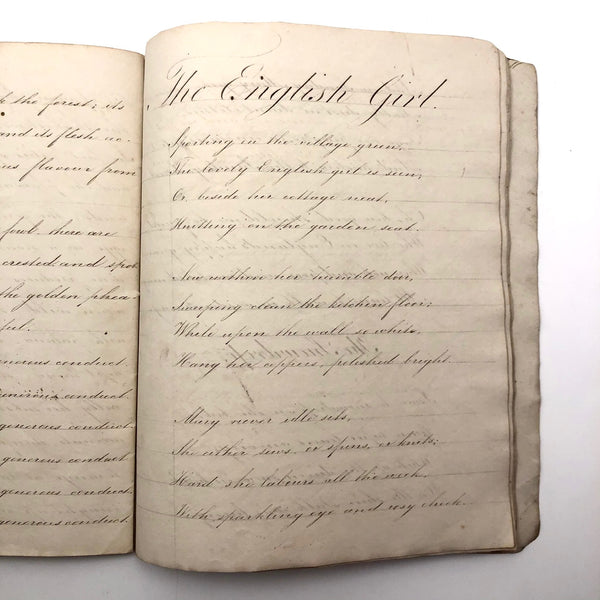 h the forest; its
and its flesh ac-
us flavour from
fowl. there are
crested. and spot-
the golden phea-
ful.
nerous conduct.
enerous conduct.
generous conduct.
generous conduct
generous conduct.
generous conduct.
The English Girl.
Sporting on the village green,
The lovely English girl is seen;
Or beside her cottage neat,
Knitting on the garden seat.
Now within her humble door,
Sweeping clean the kitchen floor;
While upon the wall so white,
Hang her coppers, polished bright.
Mary never idle sits,
She either sews, or spins, or knits;
Hard she labours all the week,
With sparkling eye and rosy cheek.